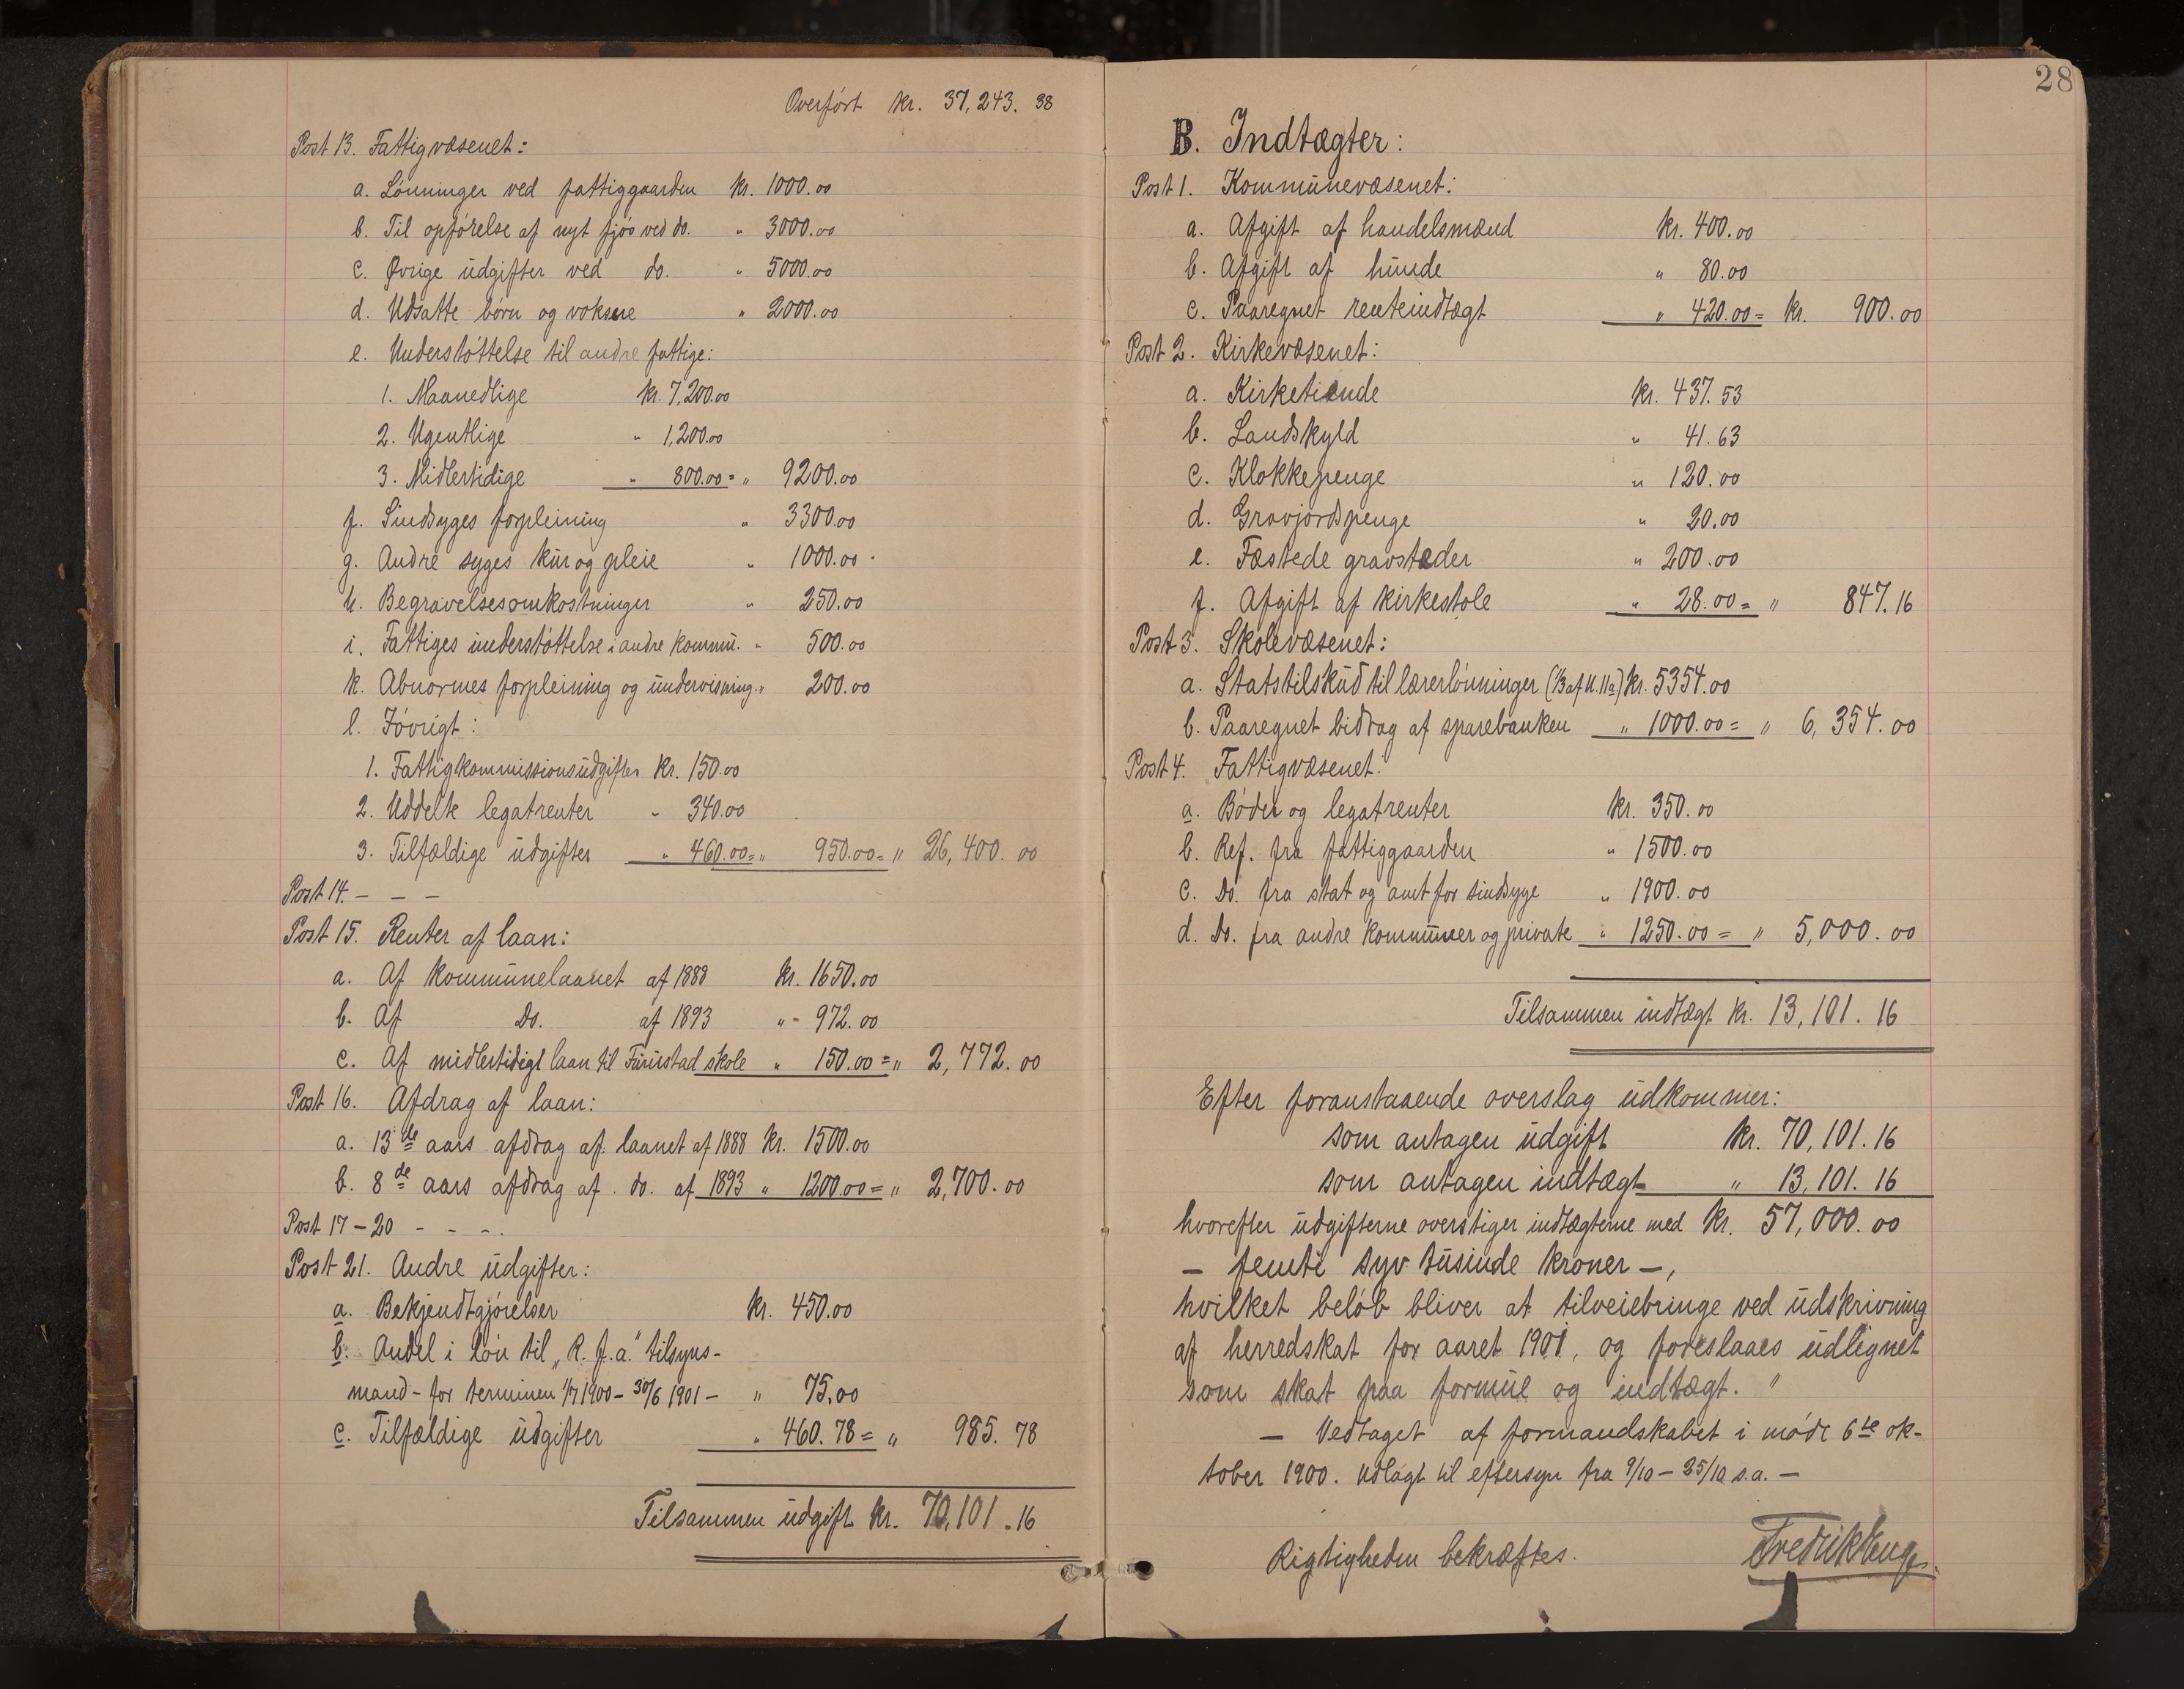 Overført kr. 37,243. 38
Post 13. Fattigvæsenet:
a. Lønninger ved fattiggaarden kr. 1000.00
b. Til opførelse af nyt fjøs ved do. " 3000.00
c. Øvrige udgifter ved do. " 5000.00
d. Udsatte børn og voksne " 2000.00
e. Understøttelse til andre fattige:
1. Maanedlige kr. 7,200.00
2. Ugentlige " 1,200.00
3. Midlertidige " 800.00 = " 9200.00
f. Sindsyges forpleining " 3300.00
g. Andre syges kur og pleie " 1000.00
h. Begravelsesomkostninger " 250.00
i. Fattiges understøttelse i andre kommu. " 500.00
k. Abnormes forpleining og undervisning " 200.00
l. Iøvrigt:
1. Fattigkommissionsudgifter kr. 150.00
2. Uddelte legatrenter " 340.00
3. Tilfældige udgifter " 460.00 = " 950.00 = " 26,400. 00
Post 14. – – –
Post 15. Renter af laan:
a. Af kommunelaanet af 1888 kr. 1650.00
b. Af do. af 1893 " - 972.00
c. Af midlertidigt laan til Furustad skole " 150.00 = " 2,772. 00
Post 16. Afdrag af laan:
a. 13de aars afdrag af laanet af 1888 kr. 1500.00
b. 8de aars afdrag af do. af 1893 " 1200.00 = " 2,700. 00
Post 17 – 20 - - -.
Post 21. Andre udgifter:
a. Bekjendtgjørelser kr. 450.00
b. Andel i løn til „R. f. a." tilsyns-
mand - for terminen 1/7 1900 – 30/6 1901 – " 75.00
c. Tilfældige udgifter " 460. 78 = " 985. 78
Tilsammen udgift kr. 70,101. 16
28
B. Indtægter:
Post 1. Kommunevæsenet:
a. Afgift af handelsmænd kr. 400.00
b. Afgift af hunde " 80.00
c. Paaregnet renteindtægt " 420.00 = kr. 900.00
Post 2. Kirkevæsenet:
a. Kirketiende kr. 437. 53
b. Landskyld " 41. 63
c. Klokkepenge " 120.00
d. Gravjordspenge " 20.00
e. Fæstede gravsteder " 200.00
f. Afgift af kirkestole " 28.00 = " 847. 16
Post 3. Skolevæsenet:
a. Statstilskud til lærerlønninger (1/3 af U. 11a) kr. 5354.00
b. Paaregnet bidrag af sparebanken " 1000.00 = " 6,354.00
Post 4. Fattigvæsenet:
a. Bøder og legatrenter kr. 350.00
b. Ref. fra fattiggaarden " 1500.00
c. Do. fra stat og amt for sindsyge " 1900.00
d. Do. fra andre kommuner og private " 1250.00 = " 5,000.00
Tilsammen indtægt kr. 13,101. 16
Efter foranstaaende overslag udkommer:
som antagen udgift kr. 70,101. 16
som antagen indtægt " 13,101. 16
hvorefter udgifterne overstiger indtægterne med kr. 57,000.00
– femti syv tusinde kroner –,
hvilket beløb bliver at tilveiebringe ved udskrivning
af herredskat for aaret 1901, og foreslaaes udlignet
som skat paa formue og indtægt. "
– Vedtaget af formandskabet i møde 6te ok-
tober 1900. Udlagt til eftersyn fra 9/10 – 25/10 s.a. –
Rigtigheden bekræftes.